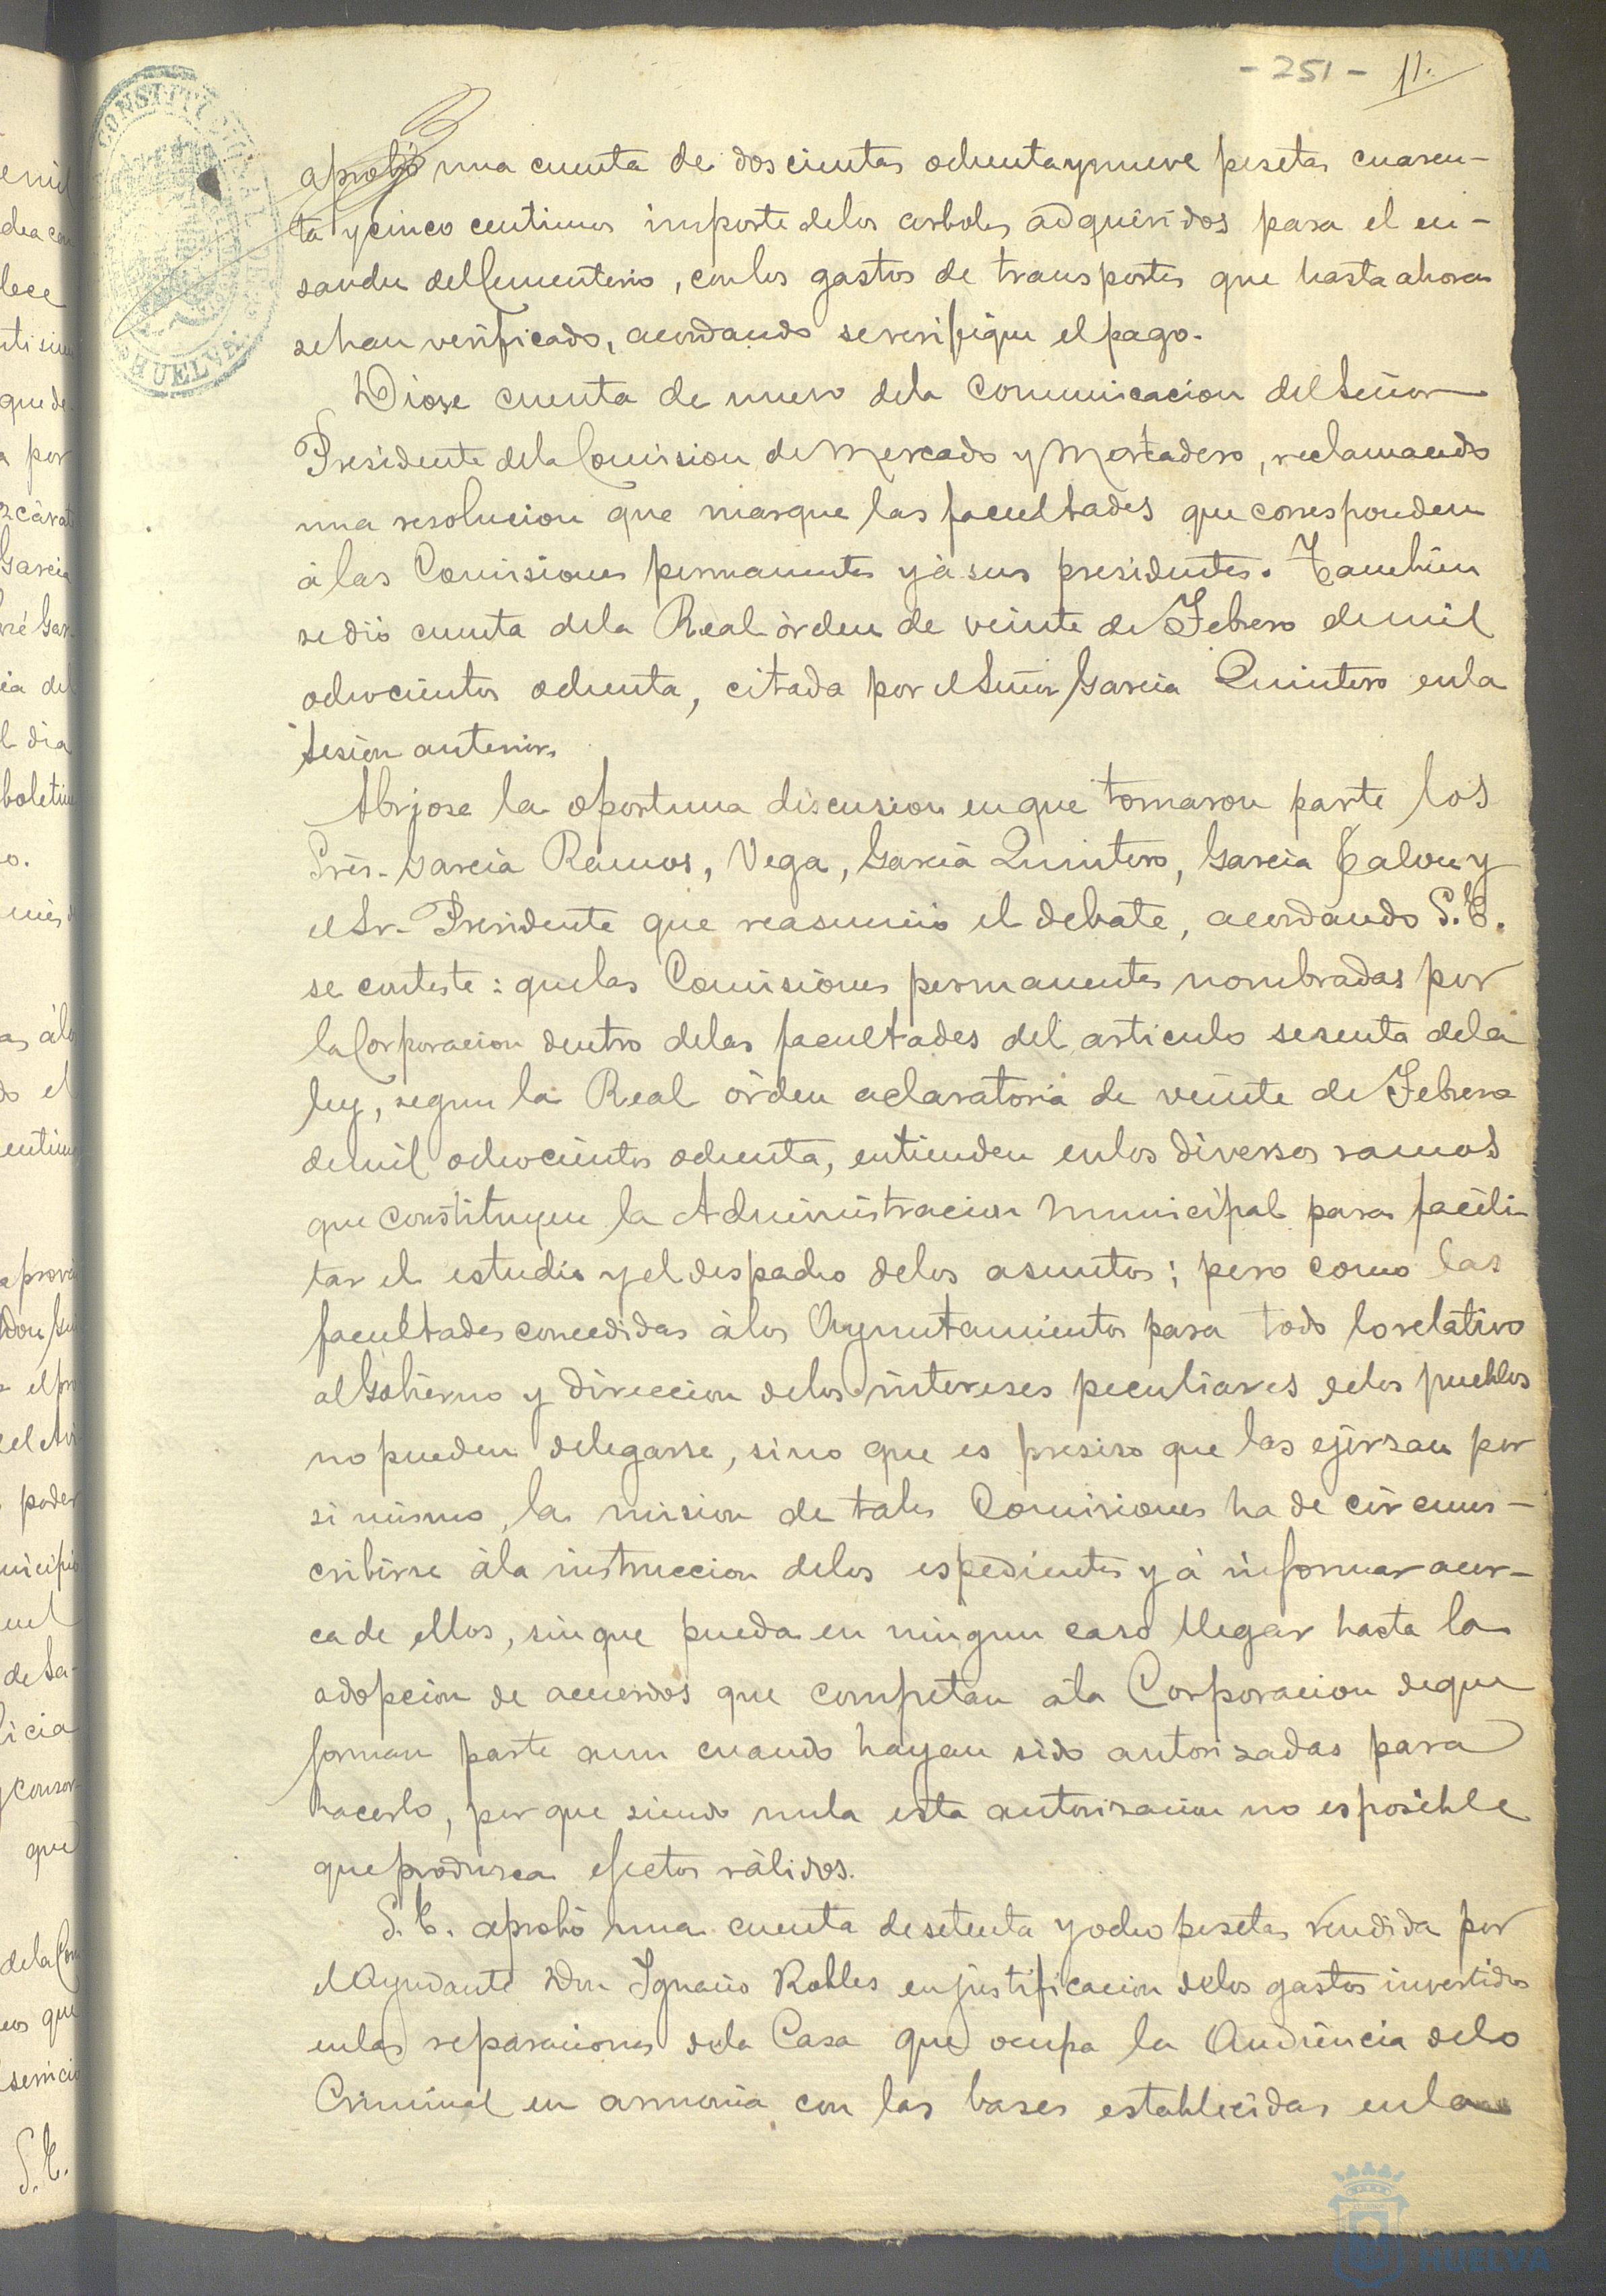 - 251 - 11.
aprobó una cuenta de doscientas ochenta y nueve pesetas cuaren-
ta y cinco centimos importe delos arboles adquiridos para el en-
sanche del Cementerio, con los gastos de transportes que hasta ahora
se han verificado, acordando se verifique el pago.
Diose cuenta de nuevo dela Comunicacion del Señor
Presidente dela Comision de Mercado y Matadero, reclamando
una resolucion que marque las facultades que corresponden
à las Comisiones permanentes y à sus presidentes. Tambien
se dió cuenta dela Real òrden de veinte de Febrero de mil
ochocientos ochenta, citada por el Señor Garcia Quintero en la
sesion anterior.
Abrjose la oportuna discusion en que tomaron parte los
Sres. Garcia Ramos, Vega, Garcia Quintero, Garcia Calvo y
el Sr. Presidente que reasumió el debate, acordando S.E.
se conteste: que las Comisiones permanentes nombradas por
la Corporacion dentro delas facultades del articulo sesenta dela
ley, segun la Real òrden aclaratoria de veinte de Febrero
de mil ochocientos ochenta, entienden en los diversos ramos
que constituyen la Administracion Municipal para facili
tar el estudio y el despacho delos asuntos; pero como las
facultades concedidas à los Ayuntamientos para todo lo relativo
al Gobierno y direccion delos intereses peculiares delos pueblos
no pueden delegarse, sino que es presiso que las ejersan por
si mismo, la mision de tales Comisiones ha de circuns-
cribirse àla instruccion delos espedientes y à informar acer-
ca de ellos, sin que pueda en ningun caso llegar hasta la
adopcion de acuerdos que competan àla Corporacion de que
forman parte aun cuando hayan sido autorizadas para
hacerlo, por que siendo nula esta autorizacion no es posible
que produzca efectos válidos.
S. E. aprobó una cuenta de setenta y ocho pesetas rendida por
el Ayudante Don Ignacio Robles en justificacion delos gastos invertidos
en las reparaciones dela Casa que ocupa la Audiencia delo
Criminal en armonia con las bases establecidas en la
HUELVA